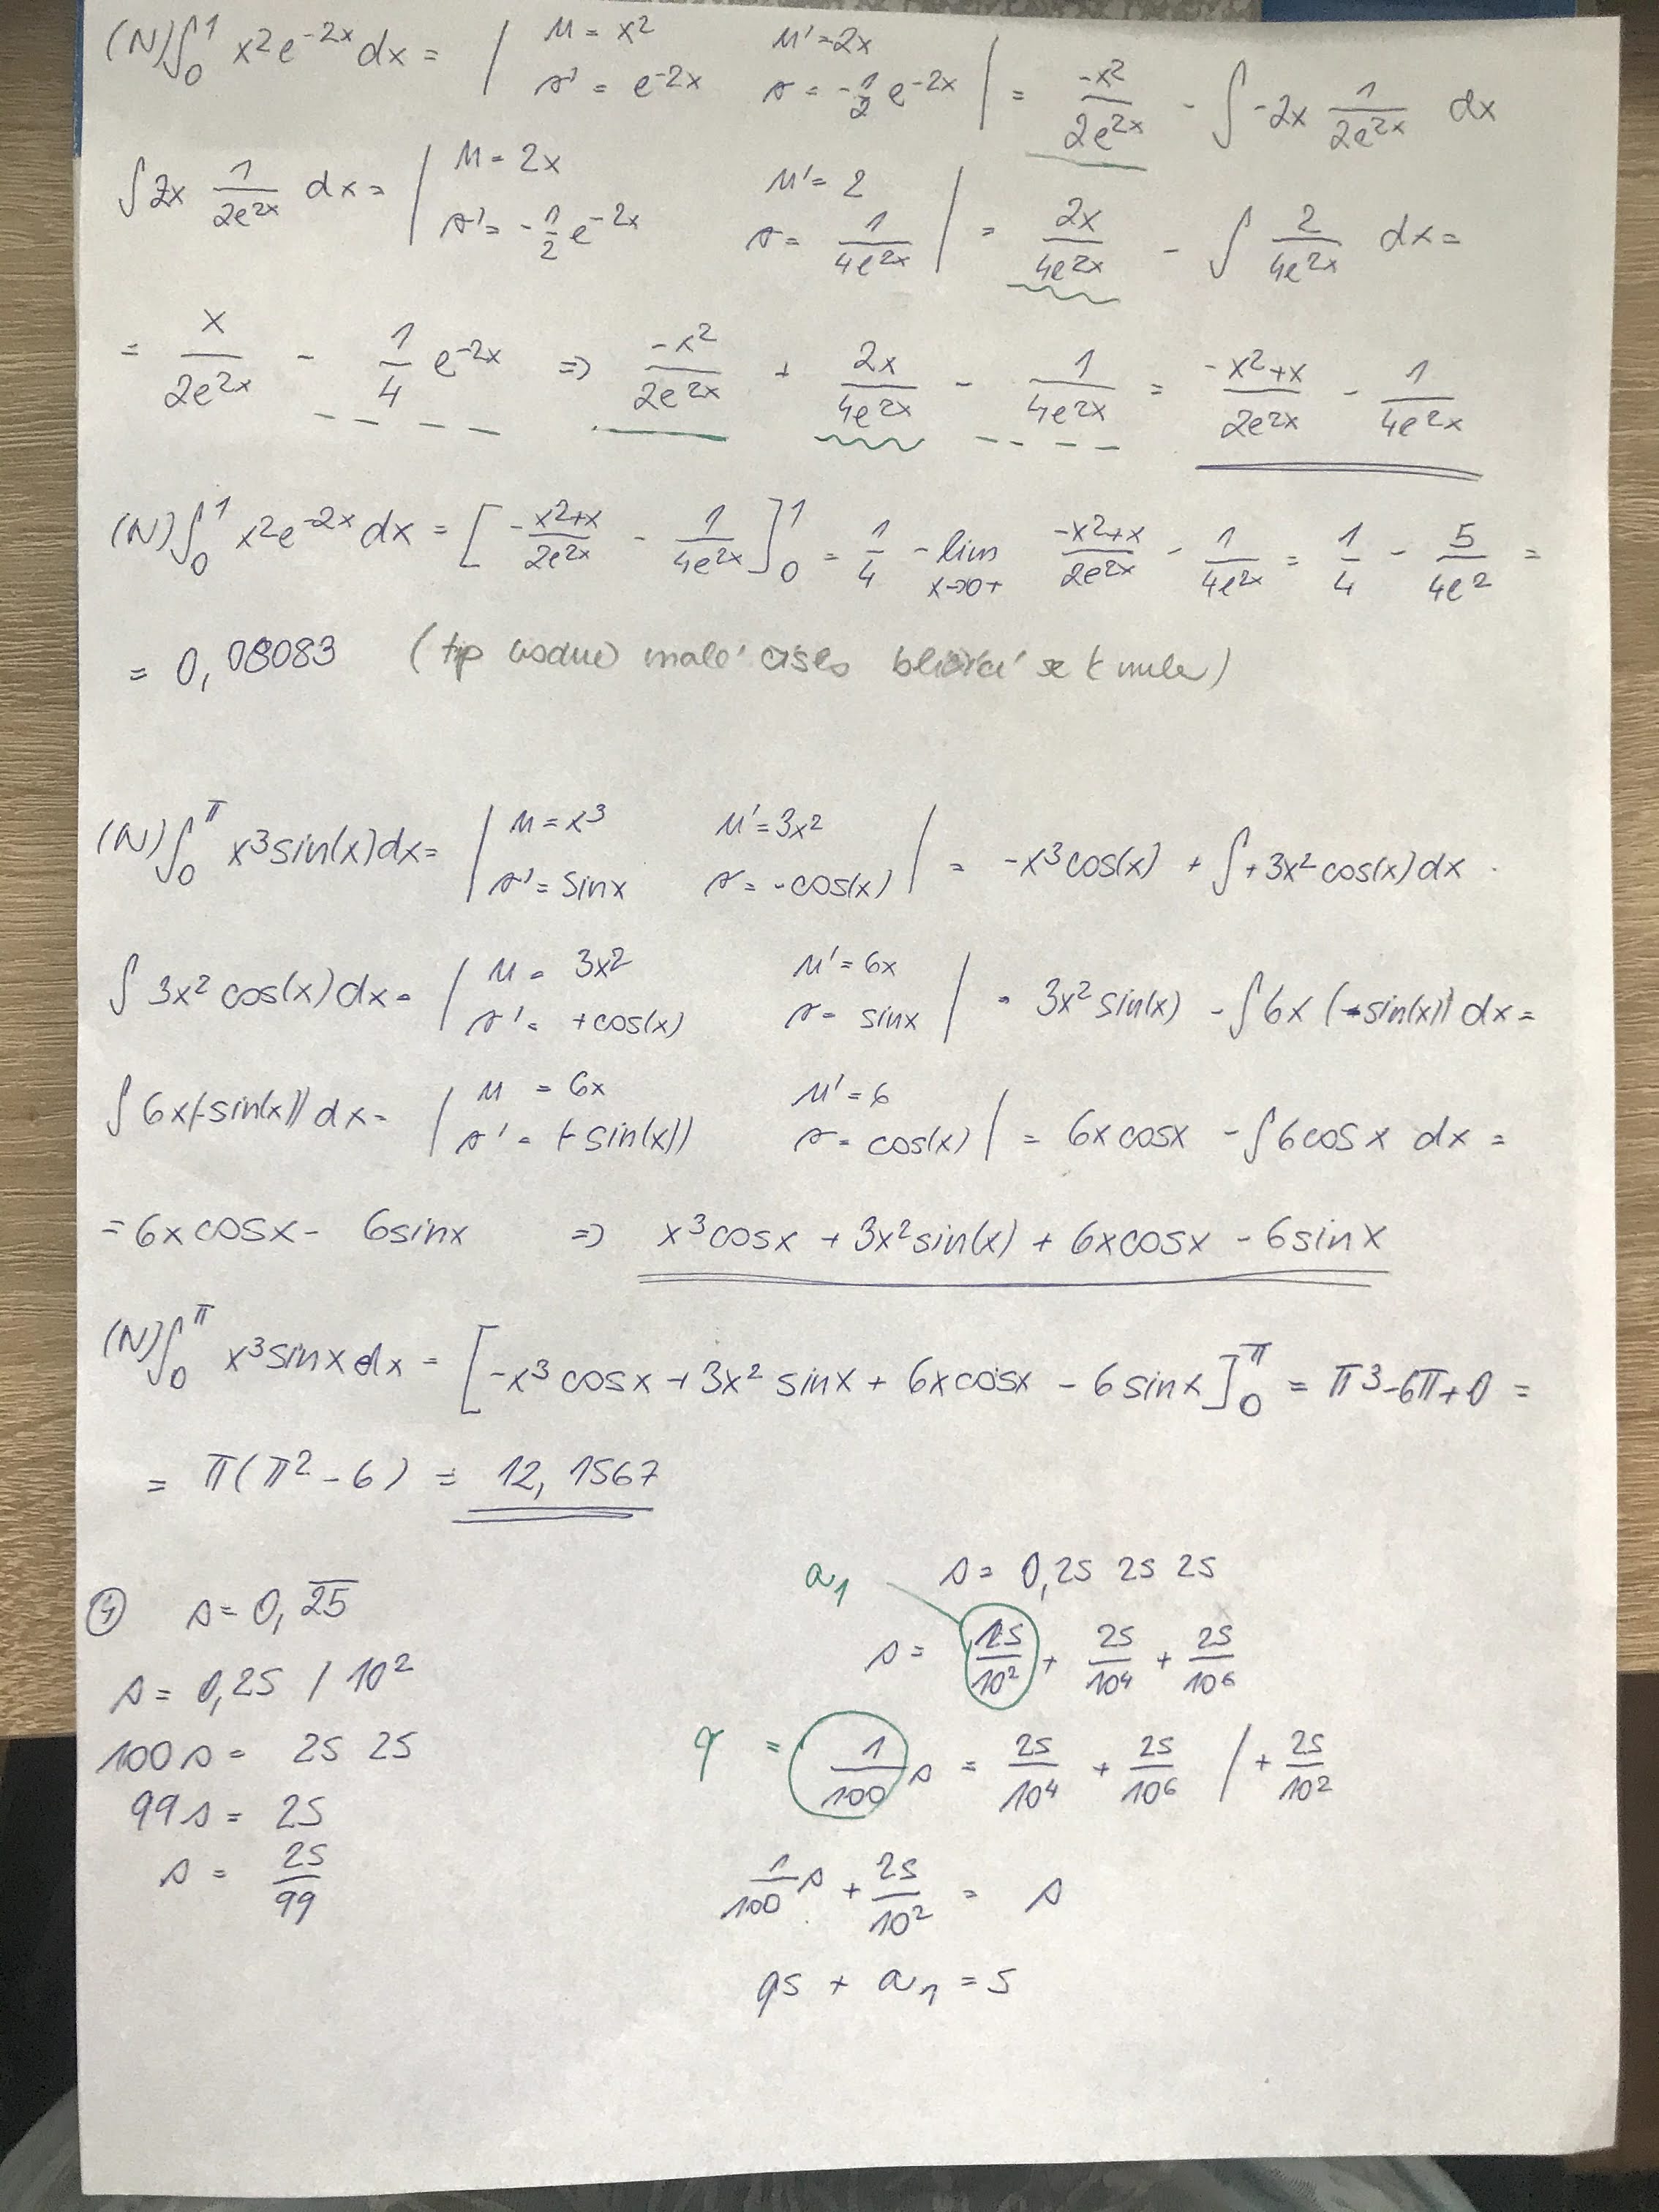 (N)∫₀¹ x²e⁻²ˣ dx = | u = x² u' = 2x v' = e⁻²ˣ v = -1/2 e⁻²ˣ | = -x²/2e²ˣ - ∫ -2x 1/2e²ˣ dx
∫ 2x 1/2e²ˣ dx = | u = 2x u' = 2 v' = -1/2 e⁻²ˣ v = 1/4e²ˣ | = 2x/4e²ˣ - ∫ 2/4e²ˣ dx =
= x/2e²ˣ - 1/4 e⁻²ˣ => -x²/2e²ˣ + 2x/4e²ˣ - 1/4e²ˣ = -x²+x/2e²ˣ - 1/4e²ˣ
(N)∫₀¹ x²e⁻²ˣ dx = [ -x²+x/2e²ˣ - 1/4e²ˣ ]₀¹ = 1/4 - lim x→0+ -x²+x/2e²ˣ - 1/4e²ˣ = 1/4 - 5/4e² =
= 0,08083 (tip malé číslo se k nule)
(N)∫₀^π x³sin(x)dx = | u = x³ u' = 3x² v' = sinx v = -cos(x) | = -x³cos(x) + ∫ +3x² cos(x)dx
∫ 3x² cos(x)dx = | u = 3x² u' = 6x v' = +cos(x) v = sinx | = 3x² sin(x) - ∫ 6x (-sin(x)) dx =
∫ 6x(-sin(x)) dx = | u = 6x u' = 6 v' = (-sin(x)) v = cos(x) | = 6x cosx - ∫ 6cosx dx =
= 6x cosx - 6sinx => x³cosx + 3x²sin(x) + 6xcosx - 6sinx
(N)∫₀^π x³sinx dx = [ -x³cosx + 3x² sinx + 6xcosx - 6sinx ]₀^π = π³ - 6π + 0 =
= π(π² - 6) = 12,1567
④ s = 0,2̅5̅
s = 0,25 / 10²
100s = 25 25
99s = 25
s = 25/99
a₁ s = 0,25 25 25
s = 25/10² + 25/10⁴ + 25/10⁶
q = 1/100 s = 25/10⁴ + 25/10⁶ / + 25/10²
1/100 s + 25/10² = s
qs + a₁ = s